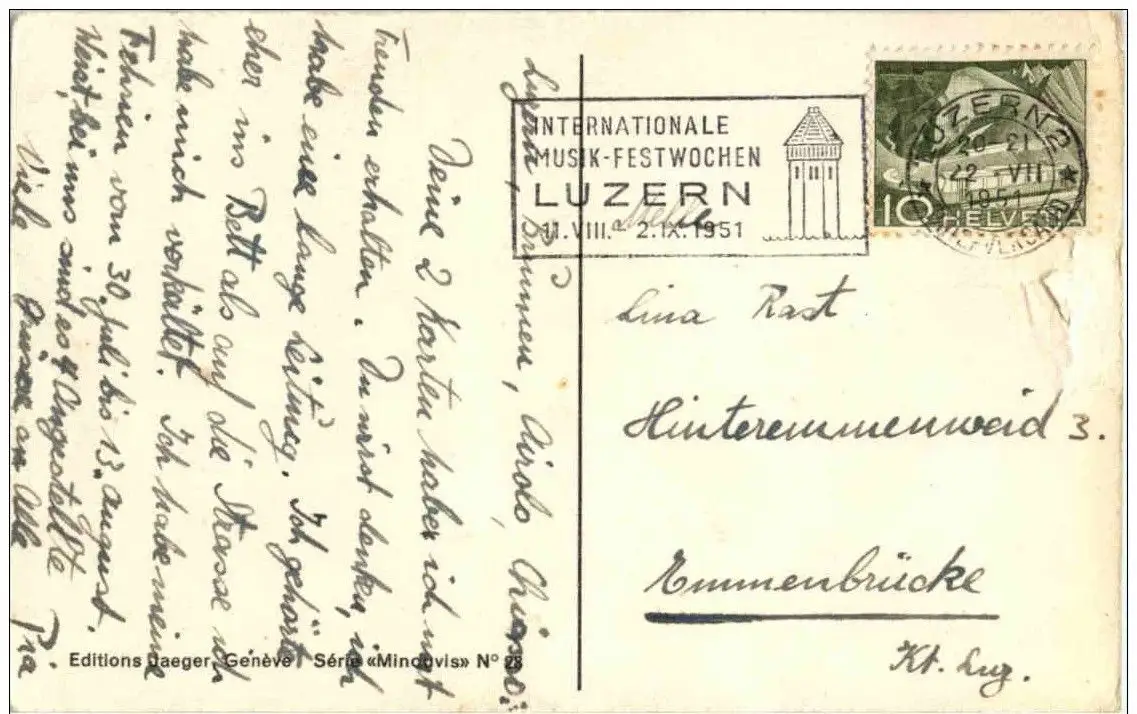 Luzern, Brunnen, Airolo, Chiasso.
Deine 2 Karten habe ich mit
Freuden erhalten. Du wirst denken, ich
habe eine lange Leitung. Ich gehörte
eher ins Bett als auf die Strasse ich
habe mich verkältet. Ich habe meine
Ferien vom 30. Juli bis 13. August.
Weist, bei uns sind es 4 Angestellte
Viele Grüsse an Alle Pia
Editions Jaeger, Genève Série «Minouvis» N° 28
INTERNATIONALE
MUSIK-FESTWOCHEN
LUZERN
11.VIII. - 2.IX.1951
LUZERN 2
20-21
22-VII
1951
10 HELVETIA
Lina Rast
Hinteremmenweid 3.
Emmenbrücke
Kt. Luz.